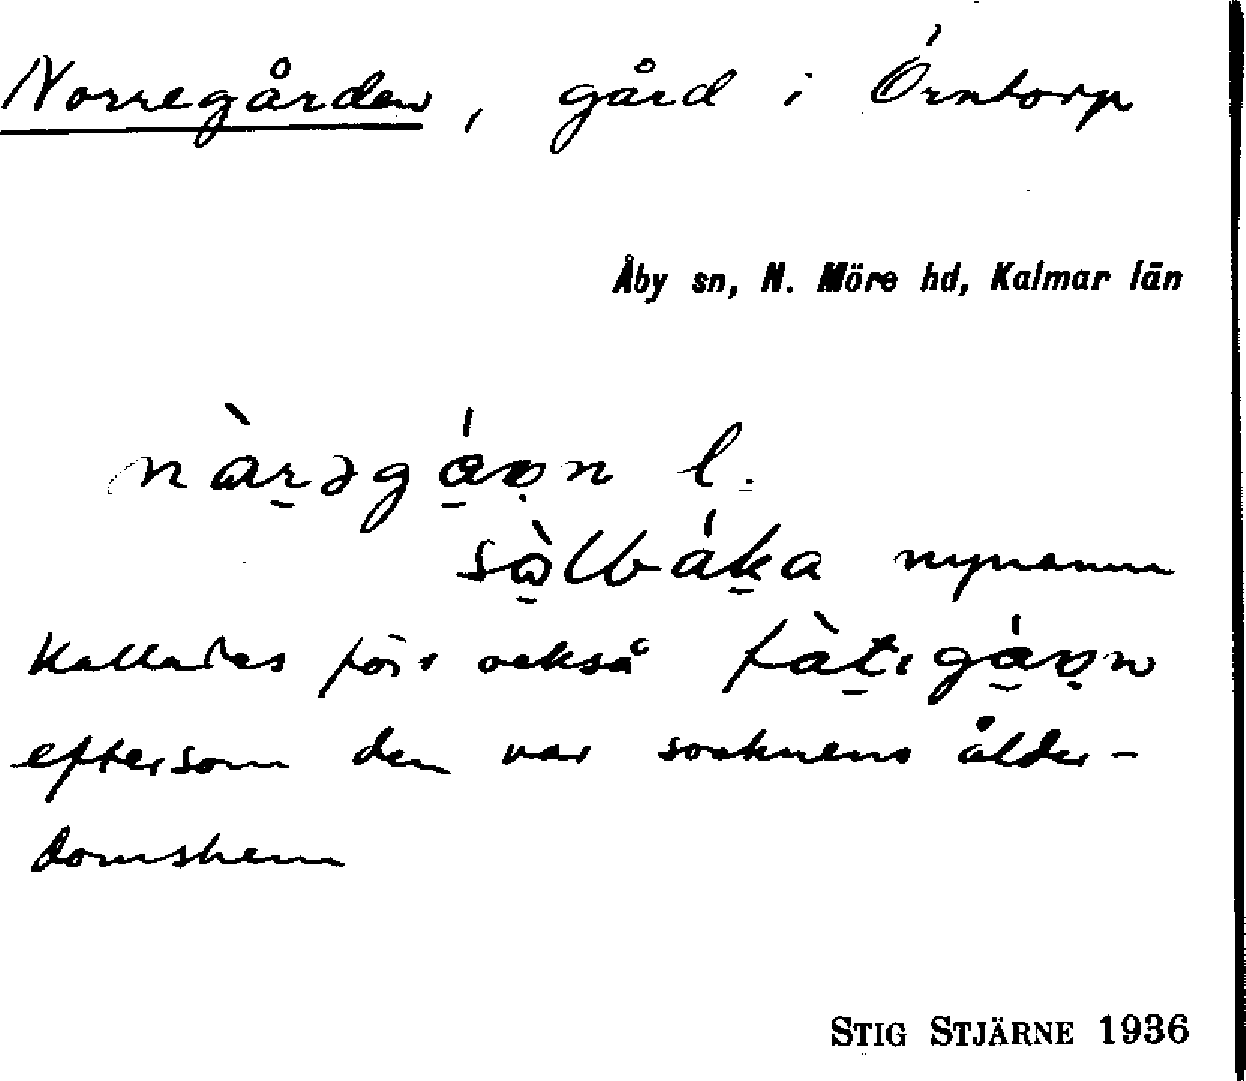 Norregården, gård i Örntorp
Åby sn, N. Möre hd, Kalmar län
nàrəgáɒn l.
sàlbáka nynamn
Kallades förr också fàtigáɒn
eftersom den var socknens ålder-
domshem
STIG STJÄRNE 1936